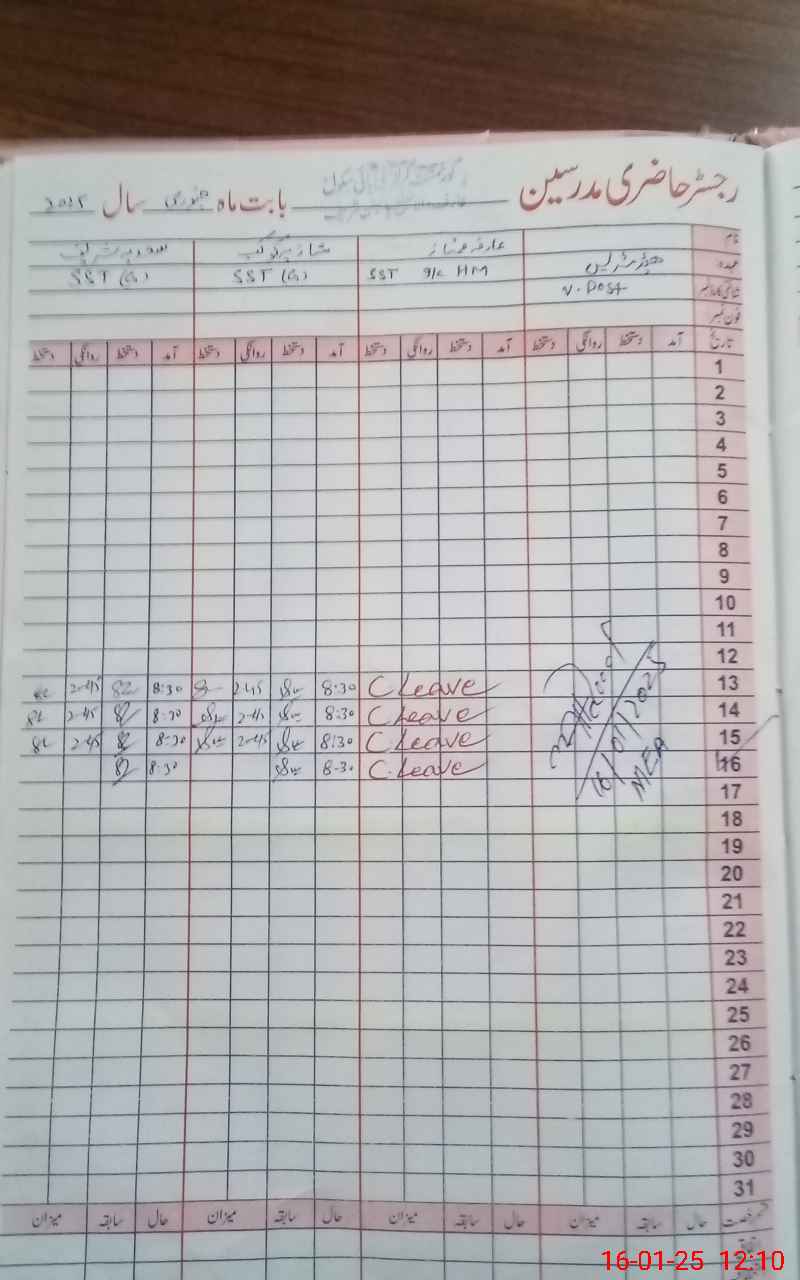 رجسٹر حاضری مدرسین بابت ماہ جنوری سال 2025
نام عارفہ ممتاز
عہدہ ہیڈمسٹریس SST I/c HM SST (G) SST (G)
V. Post
فون نمبر
تاریخ آمد دستخط روانگی دستخط آمد دستخط روانگی دستخط آمد دستخط روانگی دستخط آمد دستخط روانگی دستخط
1
2
3
4
5
6
7
8
9
10
11
12
13 C Leave 8:30 2-45 8:30 2-45
14 C Leave 8:30 2-45 8:30 2-45
15 C. Leave 8:30 2-45 8:30 2-45
16 C. Leave 8-30 8:30
16/01/2025
MEA
17
18
19
20
21
22
23
24
25
26
27
28
29
30
31
حال سابقہ میزان حال سابقہ میزان حال سابقہ میزان حال سابقہ میزان
16-01-25 12:10